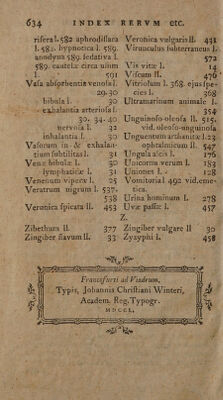 634 INDEX RERUM etc.
rifera l. 582 aphrodisiaca
l. 582. hypnotica l. 589.
anodyna 589. sedativa l.
589. cautelæ circa usum
l. 591
Vasa absorbentia venosa l.
29. 30
bibula l. 30
exhalantia arteriosa l.
30. 34. 40
nervosa l. 32
inhalantia l. 30
Vasorum in- & exhalan-
tium subtilitas l. 31
Venæ bibulæ l. 30
lymphaticæ l. 31
Venenum vipera l. 25
Veratrum nigrum l. 537.
538
Veronica spicata II. 453
Zibethum II. 377
Zingiber flavum II. 33
Veronica vulgaris II. 451
Virunculus subterraneus l.
572
Vis vitæ l. 14
Viscum II. 476
Vitriolum l. 368. ejus spe-
cies l. 368
Ultramarinum animale l.
354
Unguinoso-oleosa II. 515.
vid. oleoso-unguinosa
Unguentum arthanitæ l. 23
ophtalmicum II. 547
Ungula alcis l. 176
bicornu verum l. 183
Uniones l. 128
Vomitoria l 492 vid. eme-
tica.
Urina hominum l. 278
Uvæ passæ l. 457
Z.
Zingiber vulgare II 30
Zyzyphi l. 458
Francofurti ad Viadrum,
Typis, Johannis Christiani Winteri,
Academ. Reg. Typogr.
MDCCL.